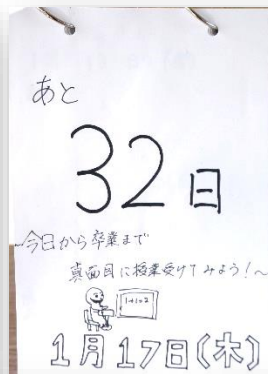 あと
32日
今日から卒業まで
真面目に授業受けてみよう！〜
1+1=2
1月17日(木)